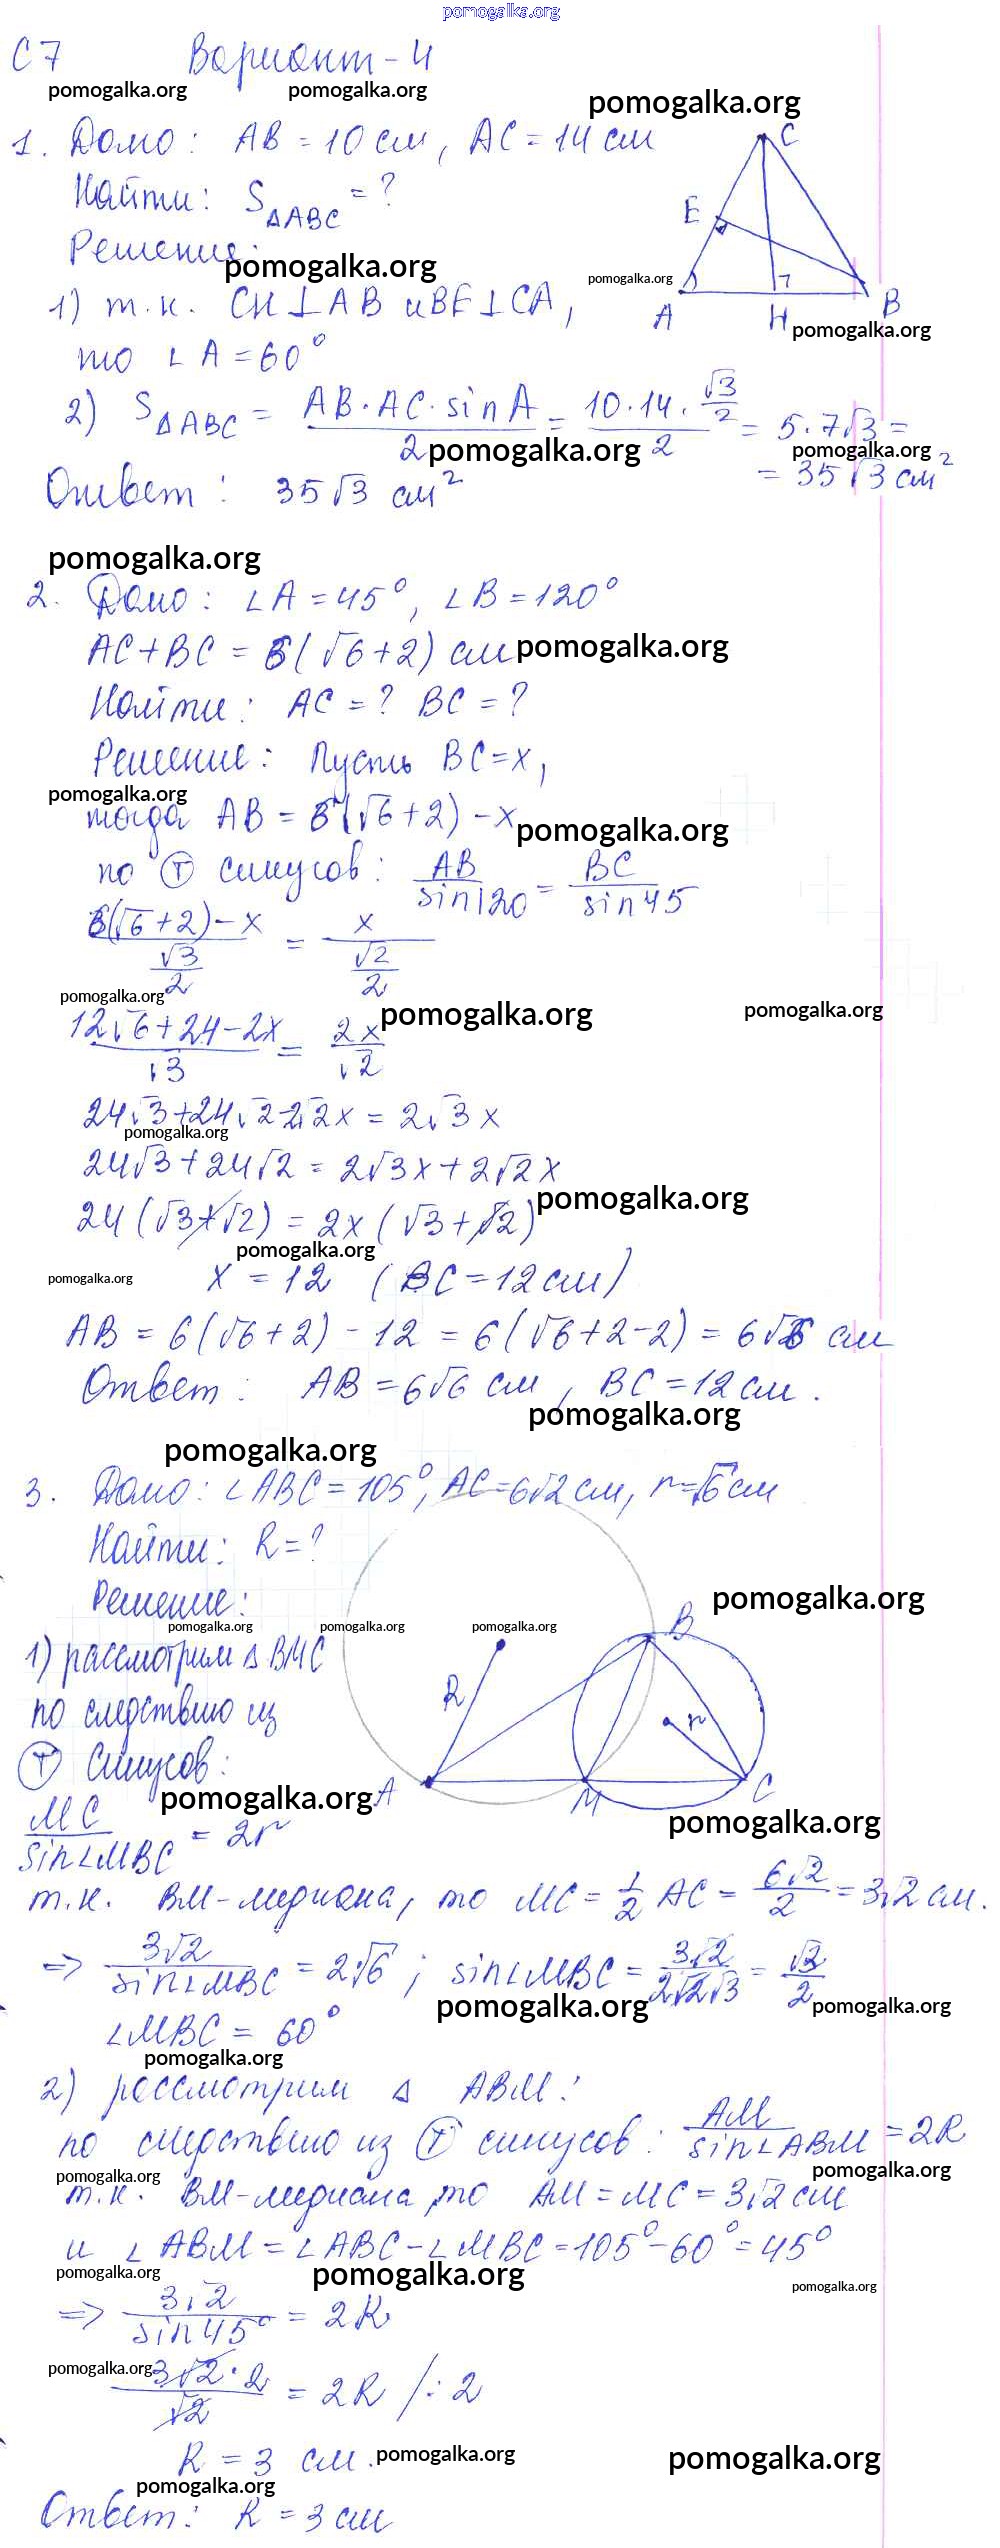 pomogalka.org
С7 Вариант-4
pomogalka.org pomogalka.org pomogalka.org
1. Дано: AB = 10 см, AC = 14 см
C
Найти: S△ABC = ?
E
Решение:
pomogalka.org pomogalka.org
1) т.к. CH⊥AB и BE⊥CA,
A H B
pomogalka.org
то ∠A = 60°
2) S△ABC = AB·AC·sinA/2 = 10·14·√3/2/2 = 5·7√3 =
pomogalka.org pomogalka.org
= 35√3 см²
Ответ: 35√3 см²
pomogalka.org
2. Дано: ∠A = 45°, ∠B = 120°
AC + BC = 6(√6+2) см
pomogalka.org
Найти: AC = ? BC = ?
Решение: Пусть BC = x,
pomogalka.org
тогда AB = 6(√6+2) - x
pomogalka.org
по Ⓣ синусов: AB/sin120 = BC/sin45
6(√6+2) - x / √3/2 = x / √2/2
pomogalka.org pomogalka.org pomogalka.org
12√6+24-2x / √3 = 2x / √2
24√3+24√2-2√2x = 2√3x
pomogalka.org
24√3+24√2 = 2√3x+2√2x
24(√3+√2) = 2x(√3+√2)
pomogalka.org
pomogalka.org
pomogalka.org
x = 12 (BC = 12 см)
AB = 6(√6+2) - 12 = 6(√6+2-2) = 6√6 см
Ответ: AB = 6√6 см, BC = 12 см.
pomogalka.org
pomogalka.org
3. Дано: ∠ABC = 105°, AC = 6√2 см, r = √6 см
Найти: R = ?
Решение:
pomogalka.org
pomogalka.org pomogalka.org pomogalka.org
B
1) рассмотрим △BMC
R
r
по следствию из
Ⓣ синусов:
A M C
pomogalka.org
pomogalka.org
MC/sin∠MBC = 2r
т.к. BM-медиана, то MC = 1/2 AC = 6√2/2 = 3√2 см.
=> 3√2/sin∠MBC = 2√6; sin∠MBC = 3√2/2√2√3 = √3/2
pomogalka.org pomogalka.org
∠MBC = 60°
pomogalka.org
2) рассмотрим △ ABM:
по следствию из Ⓣ синусов: AM/sin∠ABM = 2R
pomogalka.org pomogalka.org
т.к. BM-медиана, то AM = MC = 3√2 см
и ∠ABM = ∠ABC - ∠MBC = 105° - 60° = 45°
pomogalka.org pomogalka.org pomogalka.org
=> 3√2/sin45° = 2R
pomogalka.org
3√2·2/√2 = 2R /:2
R = 3 см.
pomogalka.org pomogalka.org
pomogalka.org
Ответ: R = 3 см